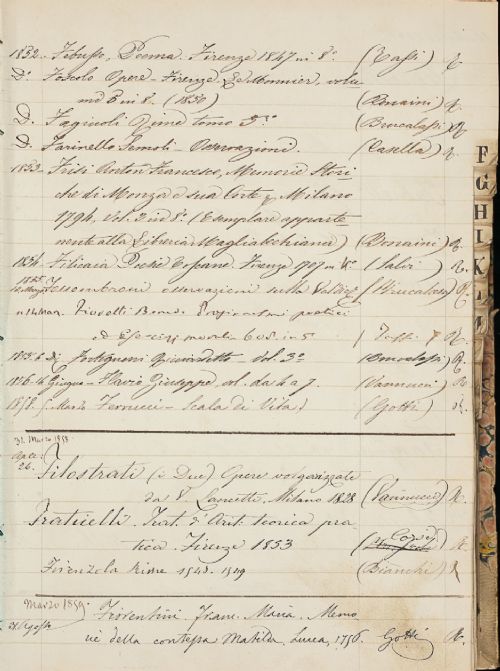 1852. Febusso, Poema. Firenze 1847 in 8.° (Tassi) R.
D.° Foscolo Opere. Firenze Le Monnier, volu-
mi 8 in 8. (1850) (Bonaini) R.
D. Fagiuoli Rime tomo 3.° (Bencalassi) R.
D. Farinello Semoli - Osservazioni. (Casella) R.
1853. Frisi Anton Francesco, Memorie Stori
che di Monza e sua Corte, Milano
1794, vol. 2 in 8.° (Esemplare apparte-
nente alla Libreria Magliabechiana) (Bonaini) R.
1854. Filicaia Poesie Toscane. Firenze 1707 in 4.° (Salvi) R.
1855. Fossombroni osservazioni sulla Valdi R.
Fioretti Bened.
ed Esercizj morali in 5 R.
Forteguerri Ricciardetto Vol. 3.° R.
1856. Giugno - Giuseppe, vol. da 4 a 7. (Vannucci) R.
1858. Marzo Ferrucci - Scala di Vita (Gotti) R.
31. Marzo 1858.
26. Filostrati (i Due) Opere volgarizzate
da V. Lancetti. Milano 1828 (Vannucci) R.
Fraticelli. Trat. d'Arit. teorica pra
tica. Firenze 1853 R.
Firenzuola Rime 1548. 1549 (Bianchi) R
Marzo 1859.
Fiorentini. Franc. Maria. Memo
rie della contessa Matilda, Lucca, 1756. Gotti R.
F
G
H
I
K
L
M